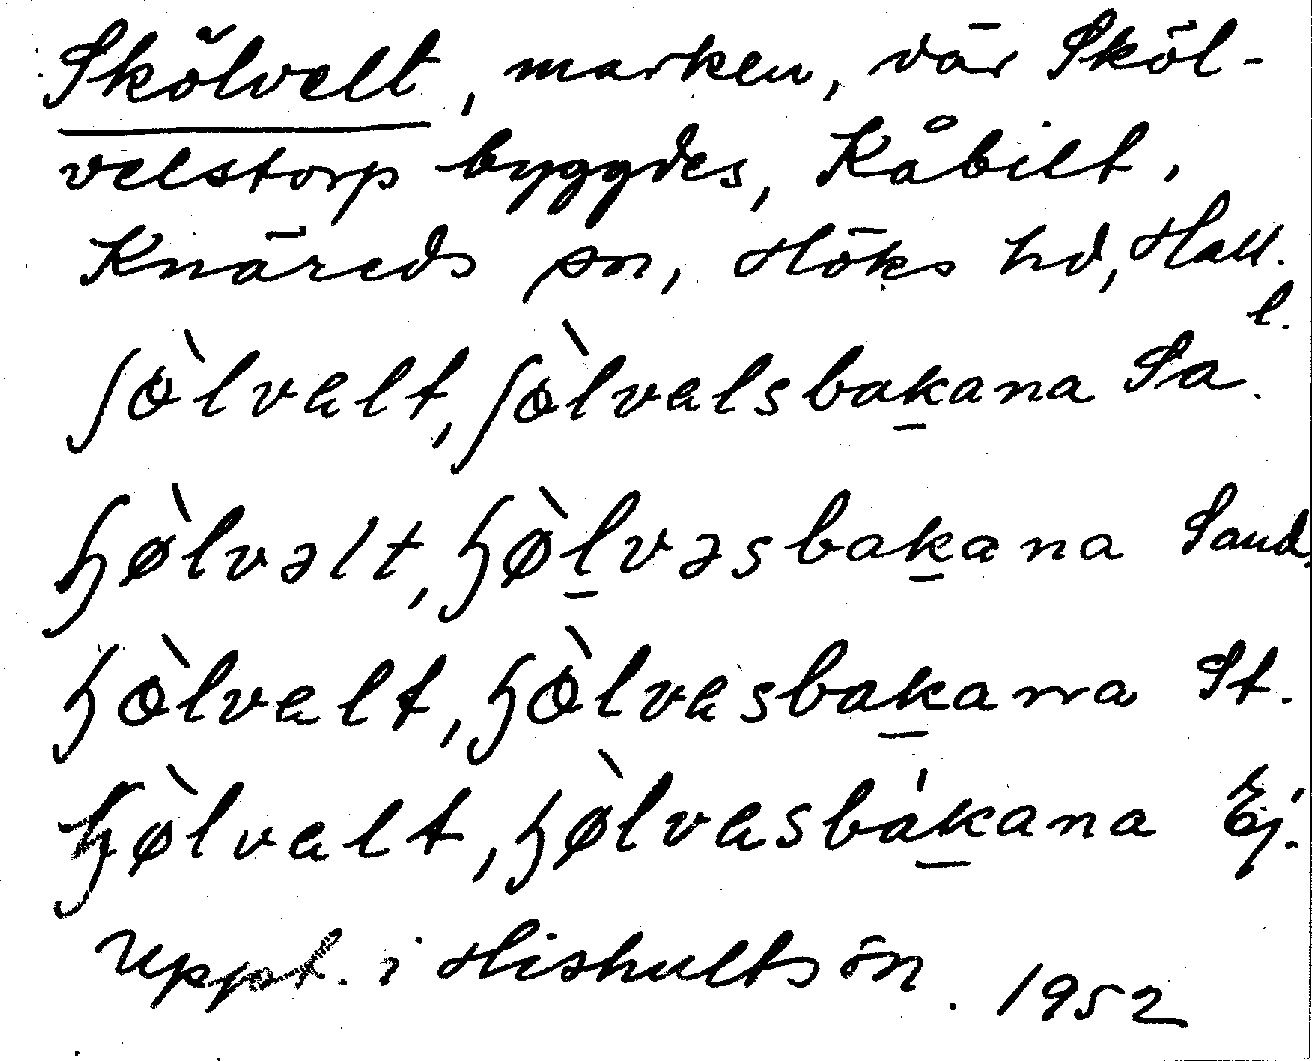 Skölvelt, marken, där Sköl-
velstorp byggdes, Kåbilt,
Knäreds sn, Höks hd, Hall.
l.
ʃòlvelt, ʃòlvelsbakana Sa.
ɧø̀lvəlt, ɧø̀lvəsbakana Sand.
ɧòlvelt, ɧòlvesbakana St.
ɧø̀lvelt, ɧø̀lvesbákana Ej.
Uppt. i Hishults sn. 1952